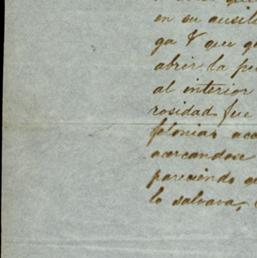 en su ausilio
ga y que
abrir la
al interior
rosidad fue
folonias
acercandose
pareciendo
lo salvara,